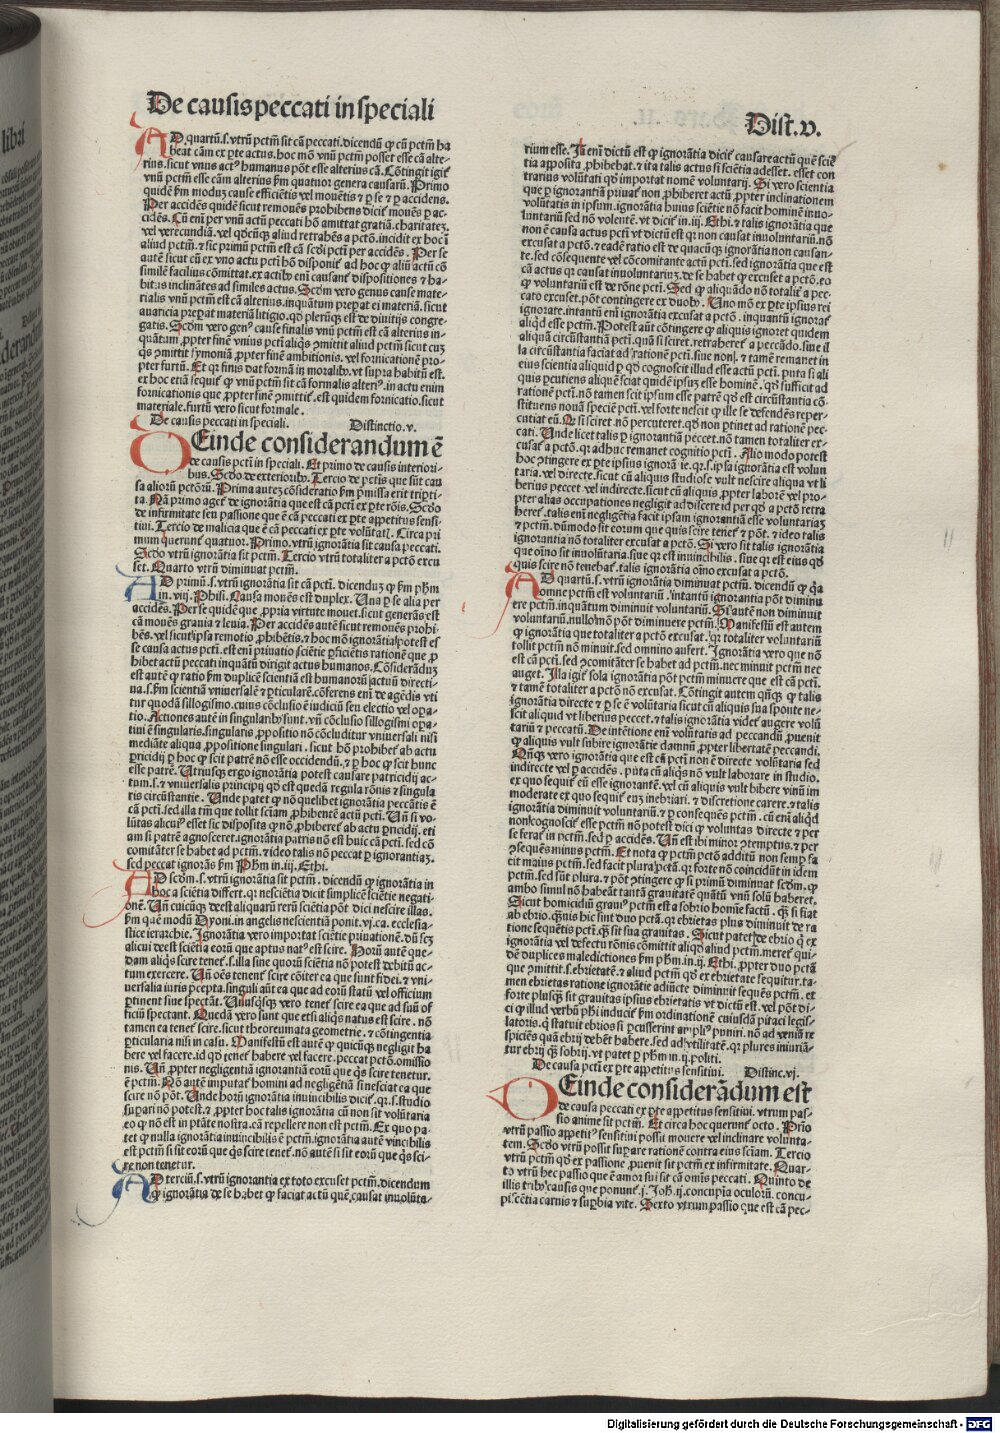 De causis peccati in speciali
Dist.v.
AD quartū.s.vtrū pctm̄ sit cā peccati.dicendū ꝙ cū pctm̄ ha
beat cām ex pte actus.hoc mō vnū pctm̄ posset esse cā alte-
rius.sicut vnus actꝰ humanus pōt esse alterius cā.Cōtingit igit᷑
vnū pctm̄ esse cām alterius ẜm quatuor genera causarū.Primo
quidē ẜm moduȝ cause efficiētis vel mouētis ⁊ ꝑ se ⁊ ꝑ accidens.
Per accidēs quidē sicut remouēs prohibens dicit᷑ mouēs ꝑ ac-
cidēs.Cū enī per vnū actū peccati hō amittat gratiā.charitateȝ.
vel verecundiā.vel qd̓cūqȝ aliud retrahēs a pctō.incidit ex hoc ī
aliud pctm̄.⁊ sic primū pctm̄ est cā scd̓i pctī per accidēs.Per se
autē sicut cū ex vno actu pctī hō disponit᷑ ad hoc ꝙ aliū actū cō
similē facilius cōmittat.ex actibȝ enī causant᷑ dispositiones ⁊ ha-
bitus inclinātes ad similes actus.Scd̓m vero genus cause mate-
rialis vnū pctm̄ est cā alterius.inquātum preparat ei materiā.sicut
auaricia preparat materiā litigio.qd̓ plerūqȝ est de diuitijs congre-
gatis.Scd̓m vero genꝰ cause finalis vnū pctm̄ est cā alterius in-
quātum ꝓpter finē vnius pctī aliq̄s ꝯmittit aliud pctm̄ sicut cuȝ
q̄s ꝯmittit symoniā ꝓpter finē ambitionis.vel fornicationē pro-
pter furtū.Et qꝛ finis dat formā in moralibȝ.vt supra habitū est.
ex hoc etiā sequit᷑ ꝙ vnū pctm̄ sit cā formalis alteriꝰ.in actu enim
fornicationis que ꝓpter finē ꝯmittit᷑.est quidem fornicatio.sicut
materiale.furtū vero sicut formale.
De causis peccati in speciali. Distinctio.v.
DEinde considerandum ē
de causis pctī in speciali.Et primo de causis interiori-
bus.Scd̓o de exterioribȝ.Tercio de pctīs que sūt cau
sa aliorū pctōrū.Prima auteȝ cōsideratio ẜm p̄missa erit triptī-
ta.Nā primo aget᷑ de ignorātia que est cā pctī ex pte rōis.Scd̓o
de infirmitate seu passione que ē cā peccati ex pte appetitus sensi-
tiui.Tercio de malicia que ē cā peccati ex pte volūtatis.Circa pri
mum querunt᷑ quatuor.Primo.vtrū ignorātia sit causa peccati.
Scd̓o vtrū ignorātia sit pctm̄.Tercio vtrū totaliter a pctō excu
set.Quarto vtrū diminuat pctm̄.
AD primū.s.vtrū ignorātia sit cā pctī.dicenduȝ ꝙ ẜm pħm
in.viij.Phisi.Causa mouēs est duplex.Una ꝑ se alia per
accidēs.Per se quidē que ꝓpria virtute mouet.sicut generās est
cā mouēs grauia ⁊ leuia.Per accidēs autē sicut remouēs prohi-
bēs.vel sicut ipsa remotio ꝓhibētis.⁊ hoc mō ignorātia potest es
se causa actus pctī.est enī priuatio sciētie ꝑficiētis rationē que ꝓ
hibet actū peccati inquātū dirigit actus humanos.Cōsiderāduȝ
est autē ꝙ ratio ẜm duplicē scientiā est humanorū actuū directi-
ua.s.ẜm scientiā vniuersalē ⁊ ꝑticularē.cōferens enī de agēdis vti
tur quodā sillogismo.cuius cōclusio ē iudiciū seu electio vel oꝑa-
tio.Actiones autē in singularibȝ sunt.vn̄ cōclusio sillogismi oꝑa-
tiui ē singularis.singularis ꝓpositio nō cōcluditur vniuersali nisi
mediāte aliqua ꝓpositione singulari.sicut hō prohibet᷑ ab actu
ꝑricidij ꝑ hoc ꝙ scit patrē nō esse occidendū.⁊ ꝑ hoc ꝙ scit hunc
esse patrē.Utriusqȝ ergo ignorātia potest causare patricidij ac-
tum.s.⁊ vniuersalis principij qd̓ est quedā regula rōnis ⁊ singula
ris circūstantie.Unde patet ꝙ nō quelibet ignorātia peccātis ē
cā pctī.sed illa tm̄ que tollit sciām ꝓhibentē actū pctī.Un̄ si vo-
lūtas alicuiꝰ esset sic disposita ꝙ nō ꝓhiberet᷑ ab actu ꝑricidij.eti
am si patrē agnosceret.ignorātia patris nō est huic cā pctī.sed cō
comitāter se habet ad pctm̄.⁊ ideo talis nō peccat ꝑ ignorantiaȝ.
sed peccat ignorās ẜm Pħm in.iij.Ethi.
AD scd̓m.s.vtrū ignorātia sit pctm̄.dicendū ꝙ ignorātia in
hoc a sciētia differt.qꝛ nesciētia dicit simplicē sciētie negati-
onē.Un̄ cuicūqȝ deest aliquarū rerū sciētia pōt dici nescire illas.
ẜm quē modū Dyoni.in angelis nescientiā ponit.vj.ca.ecclesia-
stice ierarchie.Ignorātia vero importat sciētie priuationē.dū scȝ
alicui deest sciētia eorū que aptus natꝰ est scire.Horū autē que-
dam aliqs scire tenet᷑.s.illa sine quorū sciētia nō potest debitū ac-
tum exercere.Un̄ oēs tenent᷑ scire cōiter ea que sunt fidei.⁊ vni-
uersalia iuris pcepta.singuli aūt ea que ad eorū statū vel officium
ꝑtinent siue spectāt.Unusq̄sqȝ vero tenet᷑ scire ea que ad suū of
ficiū spectant.Quedā vero sunt que etsi aliq̄s natus est scire.nō
tamen ea tenet᷑ scire.sicut theoreumata geometrie.⁊ cōtingentia
ꝑticularia nisi in casu.Manifestū est autē ꝙ quicūqȝ negligit ha
bere vel facere.id qd̓ tenet᷑ habere vel facere.peccat pctō.omissio
nis.Un̄ ꝓpter negligentiā ignorantiā eorū que q̄s scire tenetur.
ē pctm̄.Nō autē imputat᷑ homini ad negligētiā si nesciat ea que
scire nō pōt.Unde horū ignorātia inuincibilis dicit᷑.qꝛ.s.studio
suꝑari nō potest.⁊ ꝓpter hoc talis ignorātia cū non sit volūtaria
eo ꝙ nō est in ptāte nostra.cā repellere non est pctm̄.Ex quo pa-
tet ꝙ nulla ignorātia inuincibilis ē pctm̄.ignorātia autē vincibilis
est pctm̄ si sit eorū que q̄s scire tenet᷑.nō autē si sit eorū que q̄s sci-
re non tenetur.
AD terciū.s.vtrū ignorantia ex toto excuset pctm̄.dicendum
ꝙ ignorātia de se habet ꝙ faciat actū quē causat inuolūta-
rium esse.Iā enī dictū est ꝙ ignorātia dicit᷑ causare actū quē sciē
tia apposita ꝓhibebat.⁊ ita talis actus si sciētia adesset.esset con
trarius volūtati qd̓ importat nomē voluntarij.Si vero scientia
que ꝑ ignorantiā priuat᷑ non ꝓhiberet actū ꝓpter inclinationem
volūtatis in ipsum.ignorātia huius sciētie nō facit hominē inuo-
luntariū sed nō volentē.vt dicit᷑ in.iij.Ethi.⁊ talis ignorātia que
non ē causa actus pctī vt dictū est qꝛ non causat inuoluntariū.nō
excusat a pctō.⁊ eadē ratio est de quacūqȝ ignorātia non causan-
te.sed cōsequente vel cōcomitante actū pctī.sed ignorātia que est
cā actus qꝛ causat inuoluntariuȝ.de se habet ꝙ excuset a pctō.eo
ꝙ voluntariū est de rōne pctī.Sed ꝙ aliquādo nō totalit᷑ a pec-
cato excuset.pōt contingere ex duobȝ.Uno mō ex pte ipsius rei
ignorate.intantū enī ignorātia excusat a pctō.inquantū ignorat᷑
aliqd̓ esse pctm̄.Potest aūt cōtingere ꝙ aliquis ignoret quidem
aliquā circūstantiā pctī.quā si sciret.retraheret᷑ a peccādo.siue il
la circūstantia faciat ad rationē pctī.siue non.⁊ tamē remanet in
eius scientia aliquid ꝑ qd̓ cognoscit illud esse actū pctī.puta si ali
quis ꝑcutiens aliquē sciat quidē ipsuȝ esse hominē.qd̓ sufficit ad
rationē pctī.nō tamen scit ipsum esse patrē qd̓ est circūstantia cō-
stituens nouā speciē pctī.vel forte nescit ꝙ ille se defendēs reper-
cutiat eū.Qꝛ si sciret nō percuteret.qd̓ non ꝑtinet ad rationē pec-
cati.Unde licet talis ꝑ ignorantiā peccet.nō tamen totaliter ex-
cusat᷑ a pctō.qꝛ adhuc remanet cognitio pctī.Alio modo potest
hoc ꝯtingere ex pte ipsius ignorātie.qꝛ.s.ipsa ignorātia est volun
taria.vel directe.sicut cū aliquis studiose vult nescire aliqua vt li
berius peccet.vel indirecte.sicut cū aliquis ꝓpter laborē vel pro-
pter alias occupationes negligit addiscere id per qd̓ a pctō retra
heret᷑.talis enī negligētia facit ipsam ignorantiā esse voluntariaȝ
⁊ pctm̄.dūmodo sit eorum que quis scire tenet᷑ ⁊ pōt.⁊ ideo talis
ignorantia nō totaliter excusat a pctō.Si vero sit talis ignorātia
que oīno sit inuolūtaria.siue qꝛ est inuincibilis.siue qꝛ est eius qd̓
quis scire nō tenebat᷑.talis ignorātia oīno excusat a pctō.
AD quartū.s.vtrū ignorātia diminuat pctm̄.dicendū ꝙ q̄a
omne pctm̄ est voluntariū.intantū ignorantia pōt diminu
ere pctm̄.inquātum diminuit voluntariū.Si autē non diminuit
voluntariū.nullo mō pōt diminuere pctm̄.Manifestū est autem
ꝙ ignorātia que totaliter a pctō excusat.qꝛ totaliter voluntariū
tollit pctm̄ nō minuit.sed omnino aufert.Ignorātia vero que nō
est cā pctī.sed ꝯcomitāter se habet ad pctm̄.nec minuit pctm̄ nec
auget.Illa igit᷑ sola ignorātia pōt pctm̄ minuere que est cā pctī.
⁊ tamē totaliter a pctō nō excusat.Cōtingit autem qn̄qȝ ꝙ talis
ignorātia directe ⁊ ꝑ se ē volūtaria sicut cū aliquis sua sponte ne-
scit aliquid vt liberius peccet.⁊ talis ignorātia videt᷑ augere volū
tariū ⁊ peccatū.De intētione enī volūtatis ad peccandū ꝓuenit
ꝙ aliquis vult subire ignorātie damnū ꝓpter libertatē peccandi.
Qn̄qȝ vero ignorātia que est cā pctī non ē directe volūtaria sed
indirecte vel ꝑ accidēs.puta cū aliq̄s nō vult laborare in studio.
ex quo sequit᷑ eū esse ignorantē.vel cū aliquis vult bibere vinū im
moderate ex quo sequit᷑ euȝ inebriari.⁊ discretione carere.⁊ talis
ignorātia diminuit voluntariū.⁊ ꝑ consequēs pctm̄.cū enī aliqd̓
non cognoscit᷑ esse pctm̄ nō potest dici ꝙ voluntas directe ⁊ per
se ferat᷑ in pctm̄.sed ꝑ accidēs.Un̄ est ibi minor ꝯtemptus.⁊ per
ꝯsequēs minus pctm̄.Et nota ꝙ pctm̄ pctō additū non semꝑ fa
cit maius pctm̄.sed facit plura pctā.qꝛ forte nō coincidūt in idem
pctm̄.sed sūt plura.⁊ pōt ꝯtingere ꝙ si primū diminuat scd̓m.ꝙ
ambo simul nō habeāt tantā grauitatē quātū vnū solū haberet.
Sicut homicidiū grauiꝰ pctm̄ est a sobrio homīe factū.q̄ si fiat
ab ebrio.q̄uis hic sint duo pctā.qꝛ ebrietas plus diminuit de ra
tione sequētis pctī.q̄ sit sua grauitas.Sicut patet de ebrio ꝙ ex
ignorātia vel defectu rōnis cōmittit aliqd̓ aliud pctm̄.meret᷑ qui-
dē duplices maledictiones ẜm pħm.in.iij.Ethi.ꝓpter duo pctā
que ꝯmittit.s.ebrietatē.⁊ aliud pctm̄ qd̓ ex ebrietate sequitur.ta-
men ebrietas ratione ignorātie adiūcte diminuit sequēs pctm̄.et
forte plusq̄ sit grauitas ipsius ebrietatis vt dictū est.vel pōt di-
ci ꝙ illud verbū pħi inducit᷑ ẜm ordinationē cuiusdā pitaci legis-
latoris.q̄ statuit ebrios si ꝑcusserint ampliꝰ puniri.nō ad veniā re
spiciēs quā ebrij debēt habere.sed ad vtilitatē.qꝛ plures iniuriā-
tur ebrij q̄ sobrij.vt patet ꝑ pħm in.ij.politi.
De causa pctī ex pte appetitus sensitiui. Distinc.vj.
DEinde considerādum est
de causa peccati ex pte appetitus sensitiui.vtrum pas-
sio anime sit pctm̄.Et circa hoc querunt᷑ octo.Prīo
vtrū passio appetitꝰ sensitiui possit mouere vel inclinare volunta-
tem.Scd̓o vtrū possit suꝑare rationē contra eius sciam.Tercio
vtrū pctm̄ qd̓ ex passione ꝓuenit sit pctm̄ ex infirmitate.Quar-
to vtrū hec passio que ē amor sui sit cā omīs peccati.Quinto de
illis tribȝ causis que ponunt᷑.j.Joħ.ij.concupīa oculorū.concu-
piscētia carnis ⁊ suꝑbia vite.Sexto vtrum passio que est cā pec-
Digitalisierung gefördert durch die Deutsche Forschungsgemeinschaft - DFG